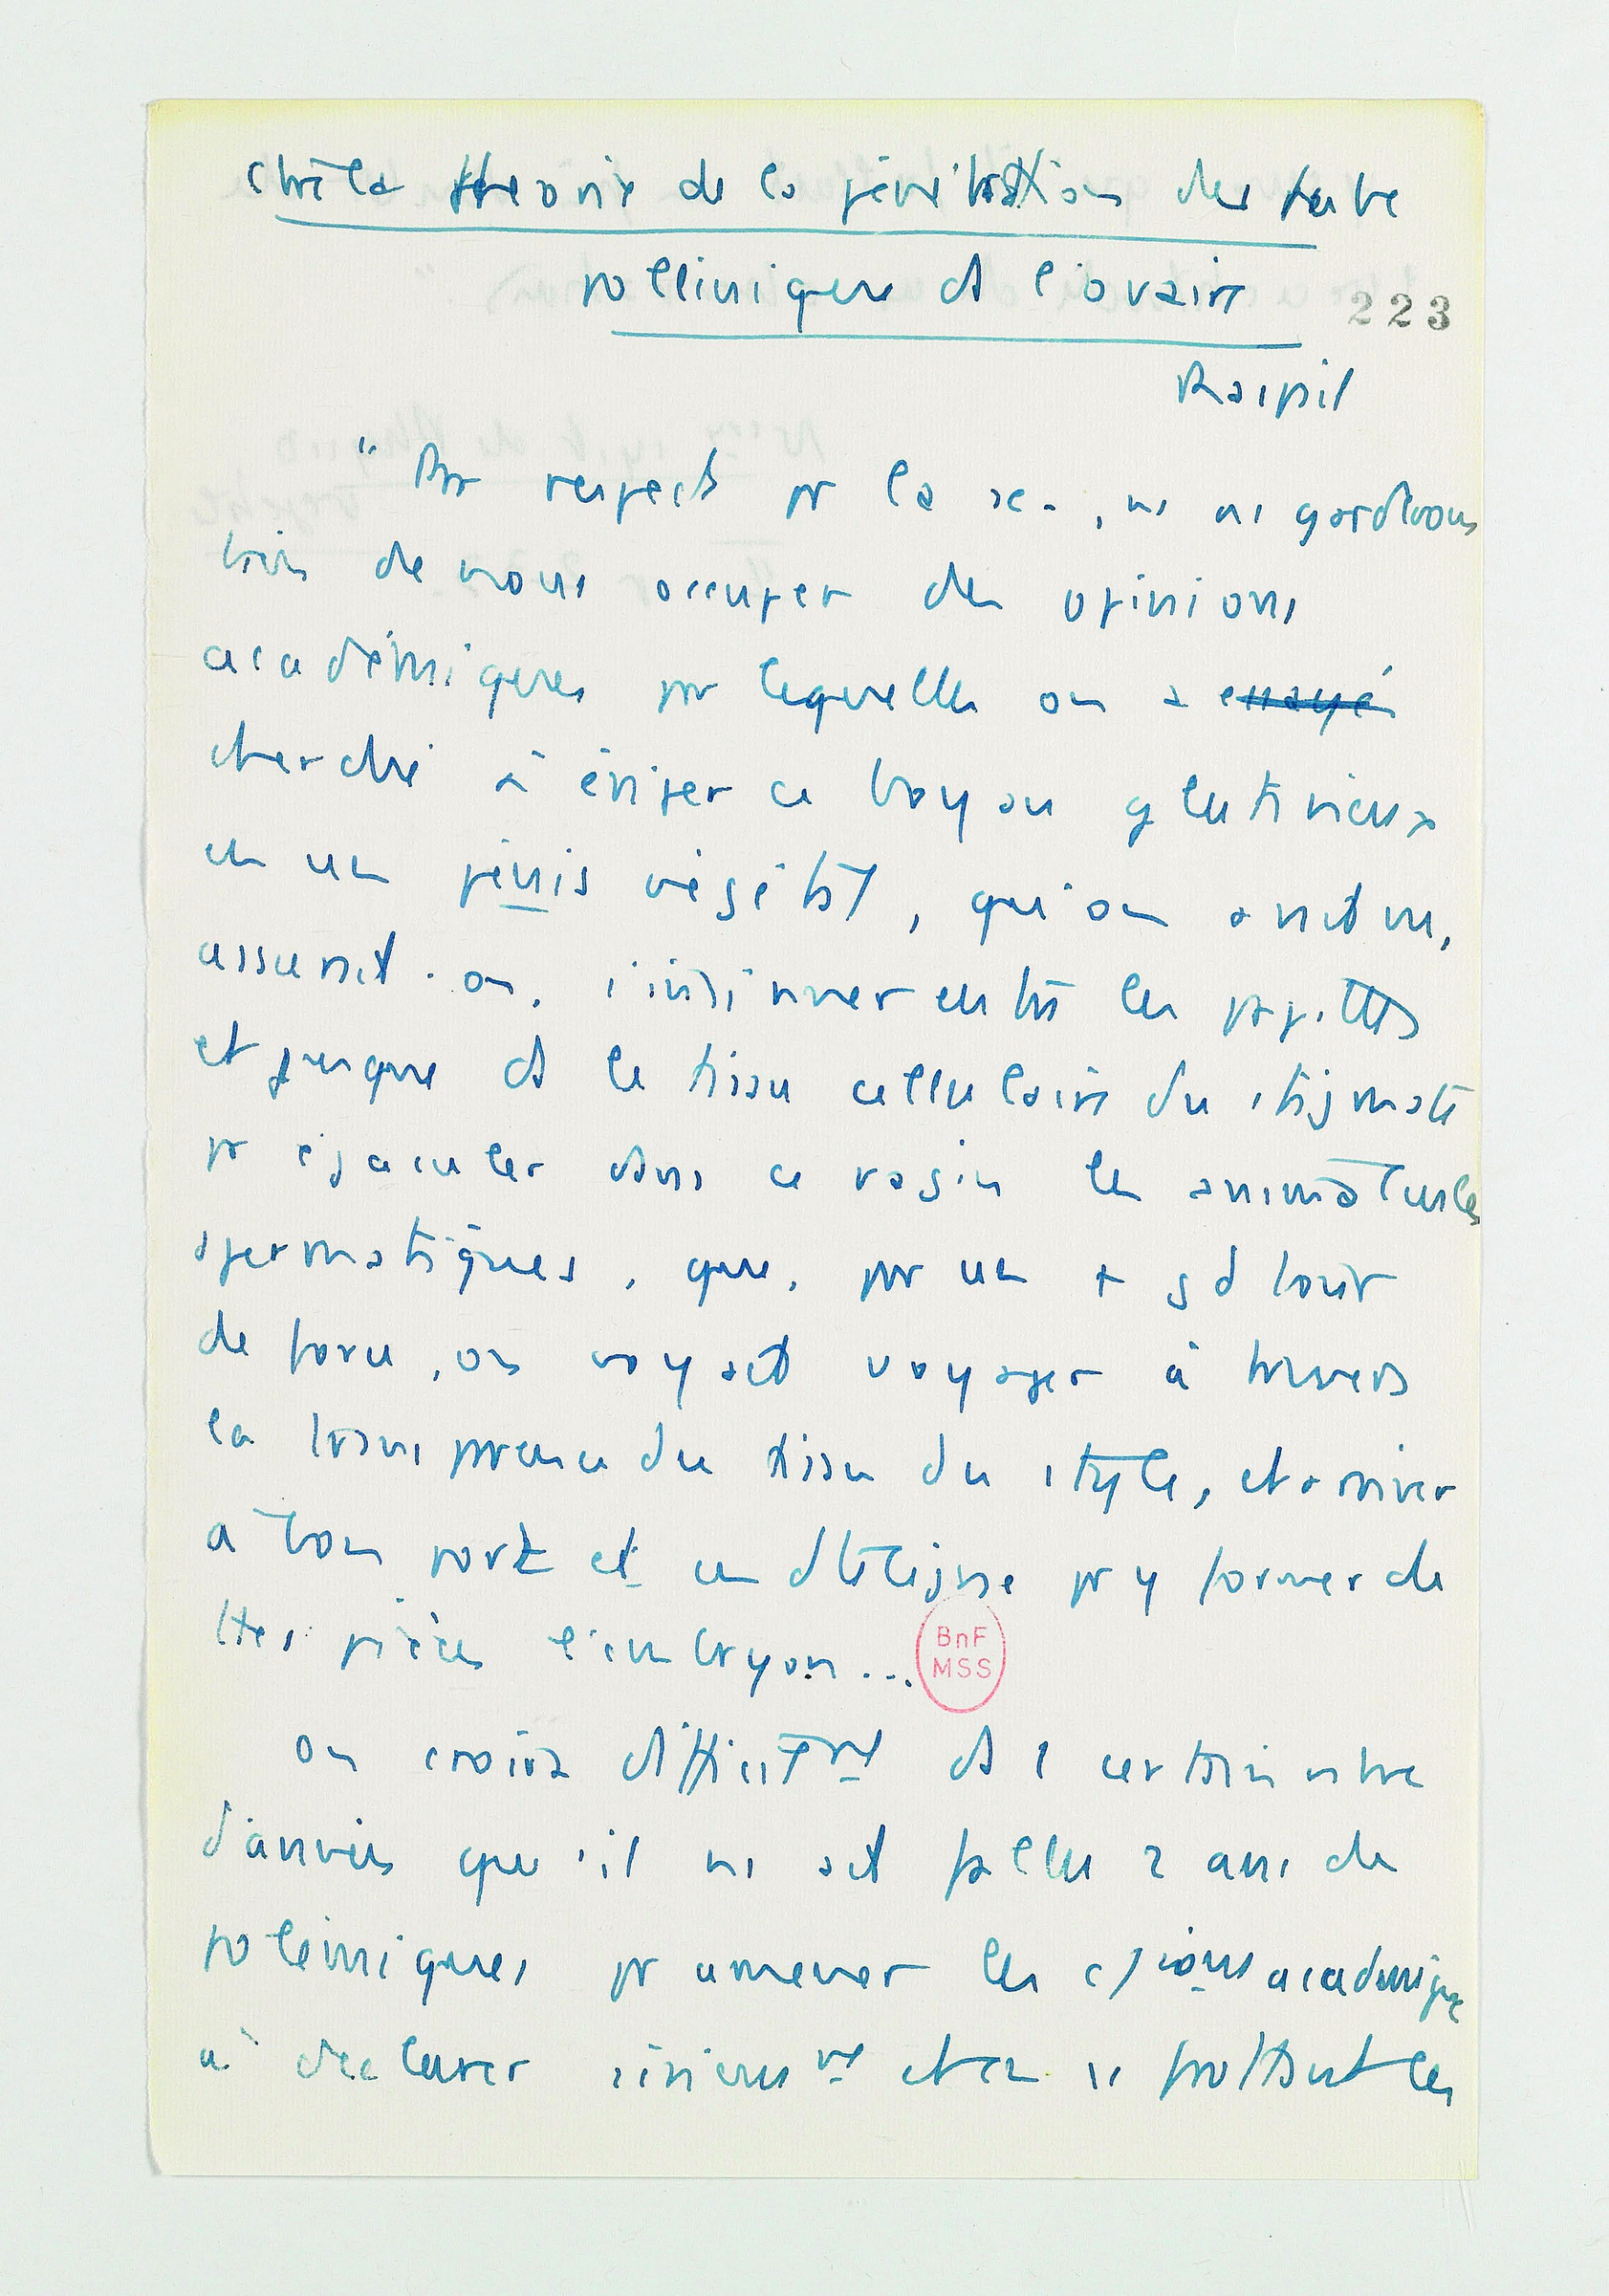 ctre la theorie de la pénétration des tube
polliniques ds l'ovaire
223
Raspail
"Par respect pr la sc., ns ns garderons
bien de nous occuper des opinions
académiques par lesquelles on a essayé
cherché à ériger ce boyau glutineux
en un pénis végétal, qu'on avait vu,
assurait-on, s'insinuer entre les papilles
et jusque ds le tissu cellulaire du stigmate
pr éjaculer dans ce vagin les animalcules
spermatiques, que, par un + gd tour
de force, on voyait voyager à travers
la transparence du tissu du style, et arriver
à bon port et en dte ligne pr y former de
ttes pièces l'embryon...
BnF
MSS
On croira difficilmt ds 1 certain nbre
d'années qu'il ns ait fallu 2 ans de
polémiques pr amener les c/ions académiq
à déclarer sérieusmt et en se frottant les